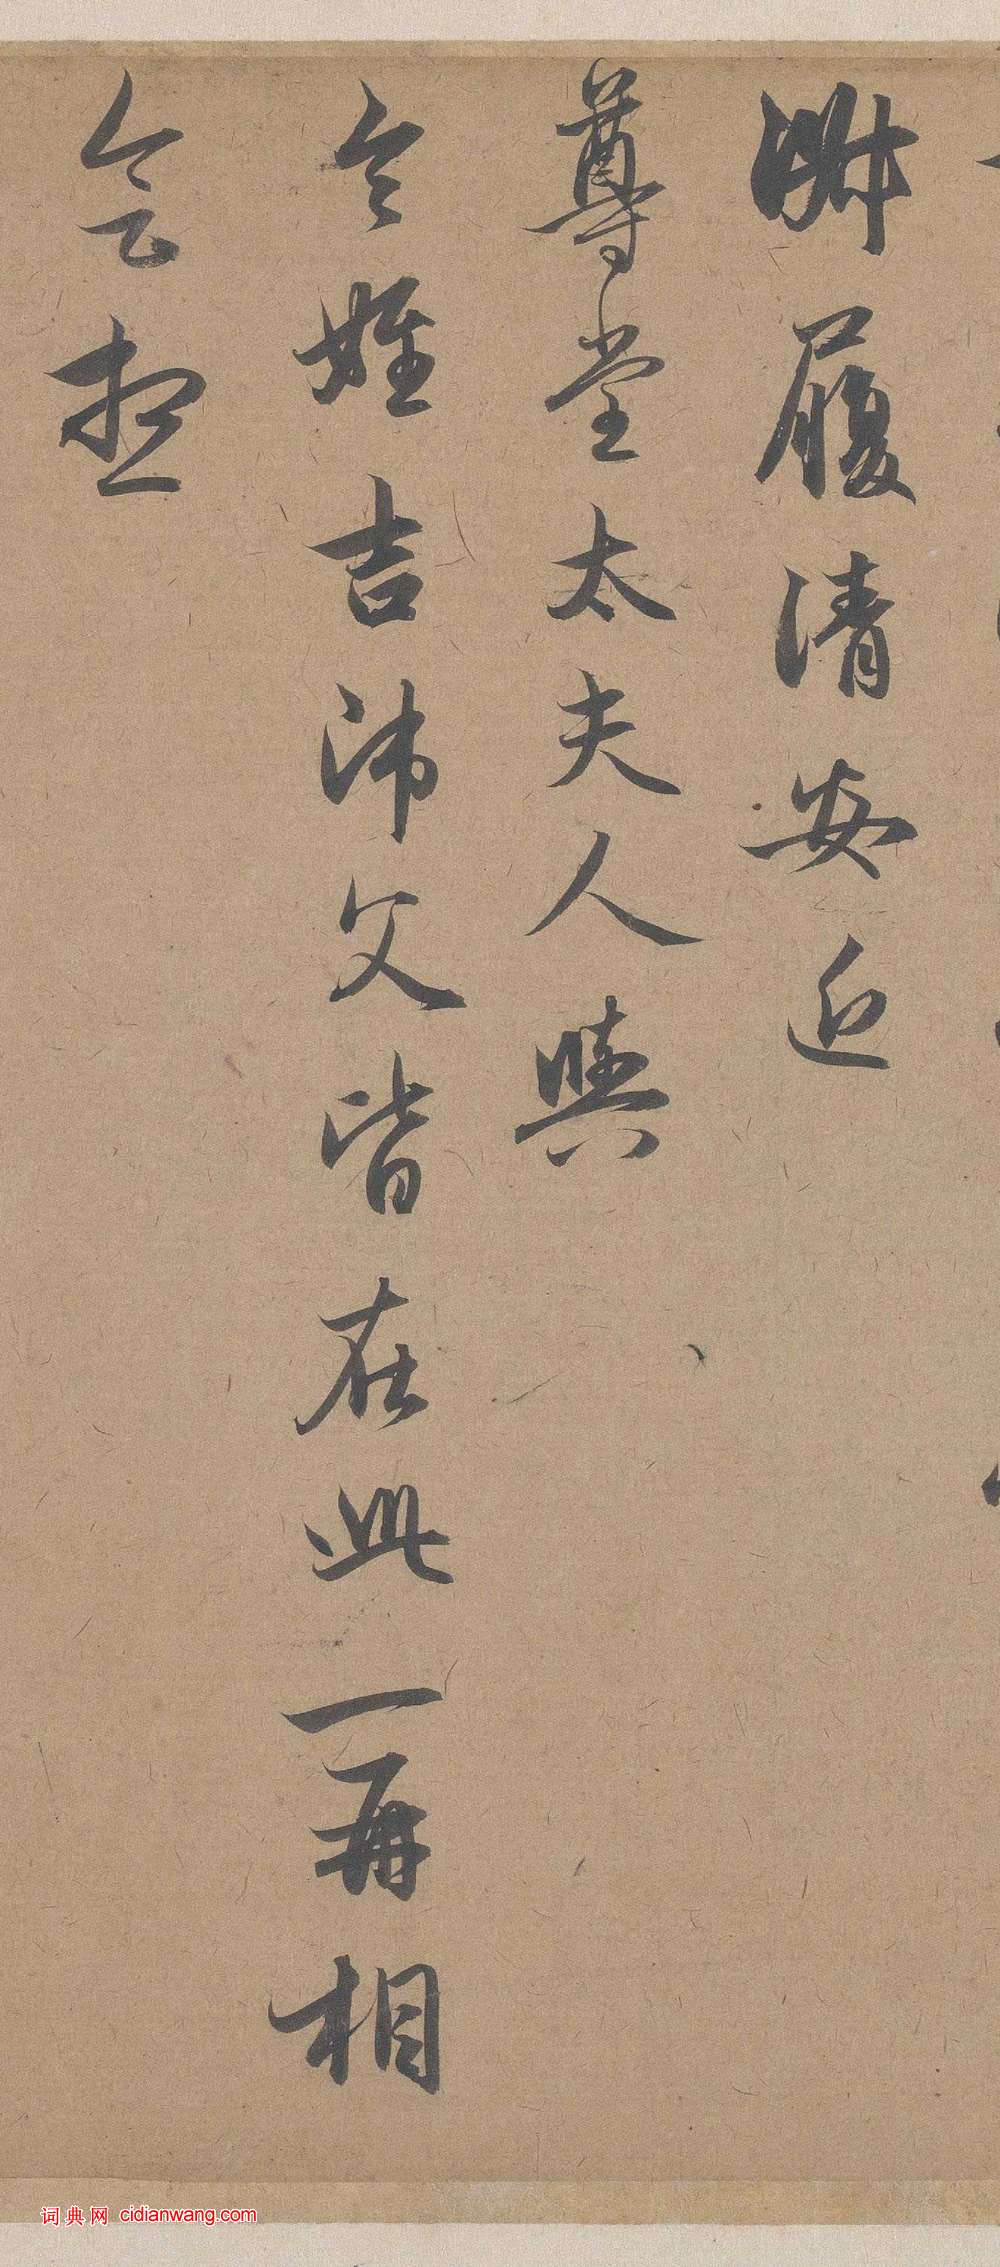 淵履清安近
尊堂太夫人與
令姪吉師父皆在此一再相
會想
词典网 cidianwang.com